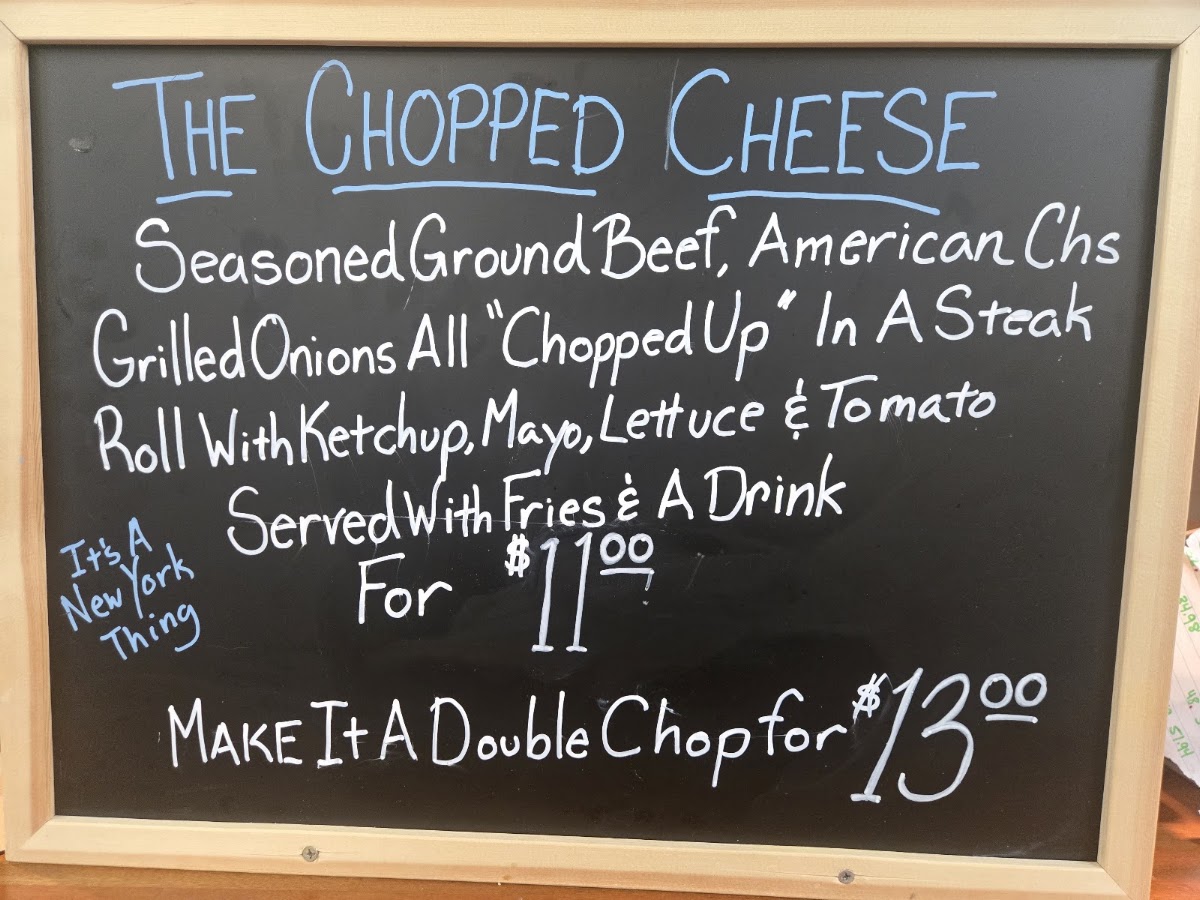 THE CHOPPED CHEESE
Seasoned Ground Beef, American Chs
Grilled Onions All "Chopped Up" In A Steak
Roll With Ketchup, Mayo, Lettuce & Tomato
Served With Fries & A Drink
For $11.00
It's A
New York
Thing
MAKE It A Double Chop for $13.00
84.98
48
51.94